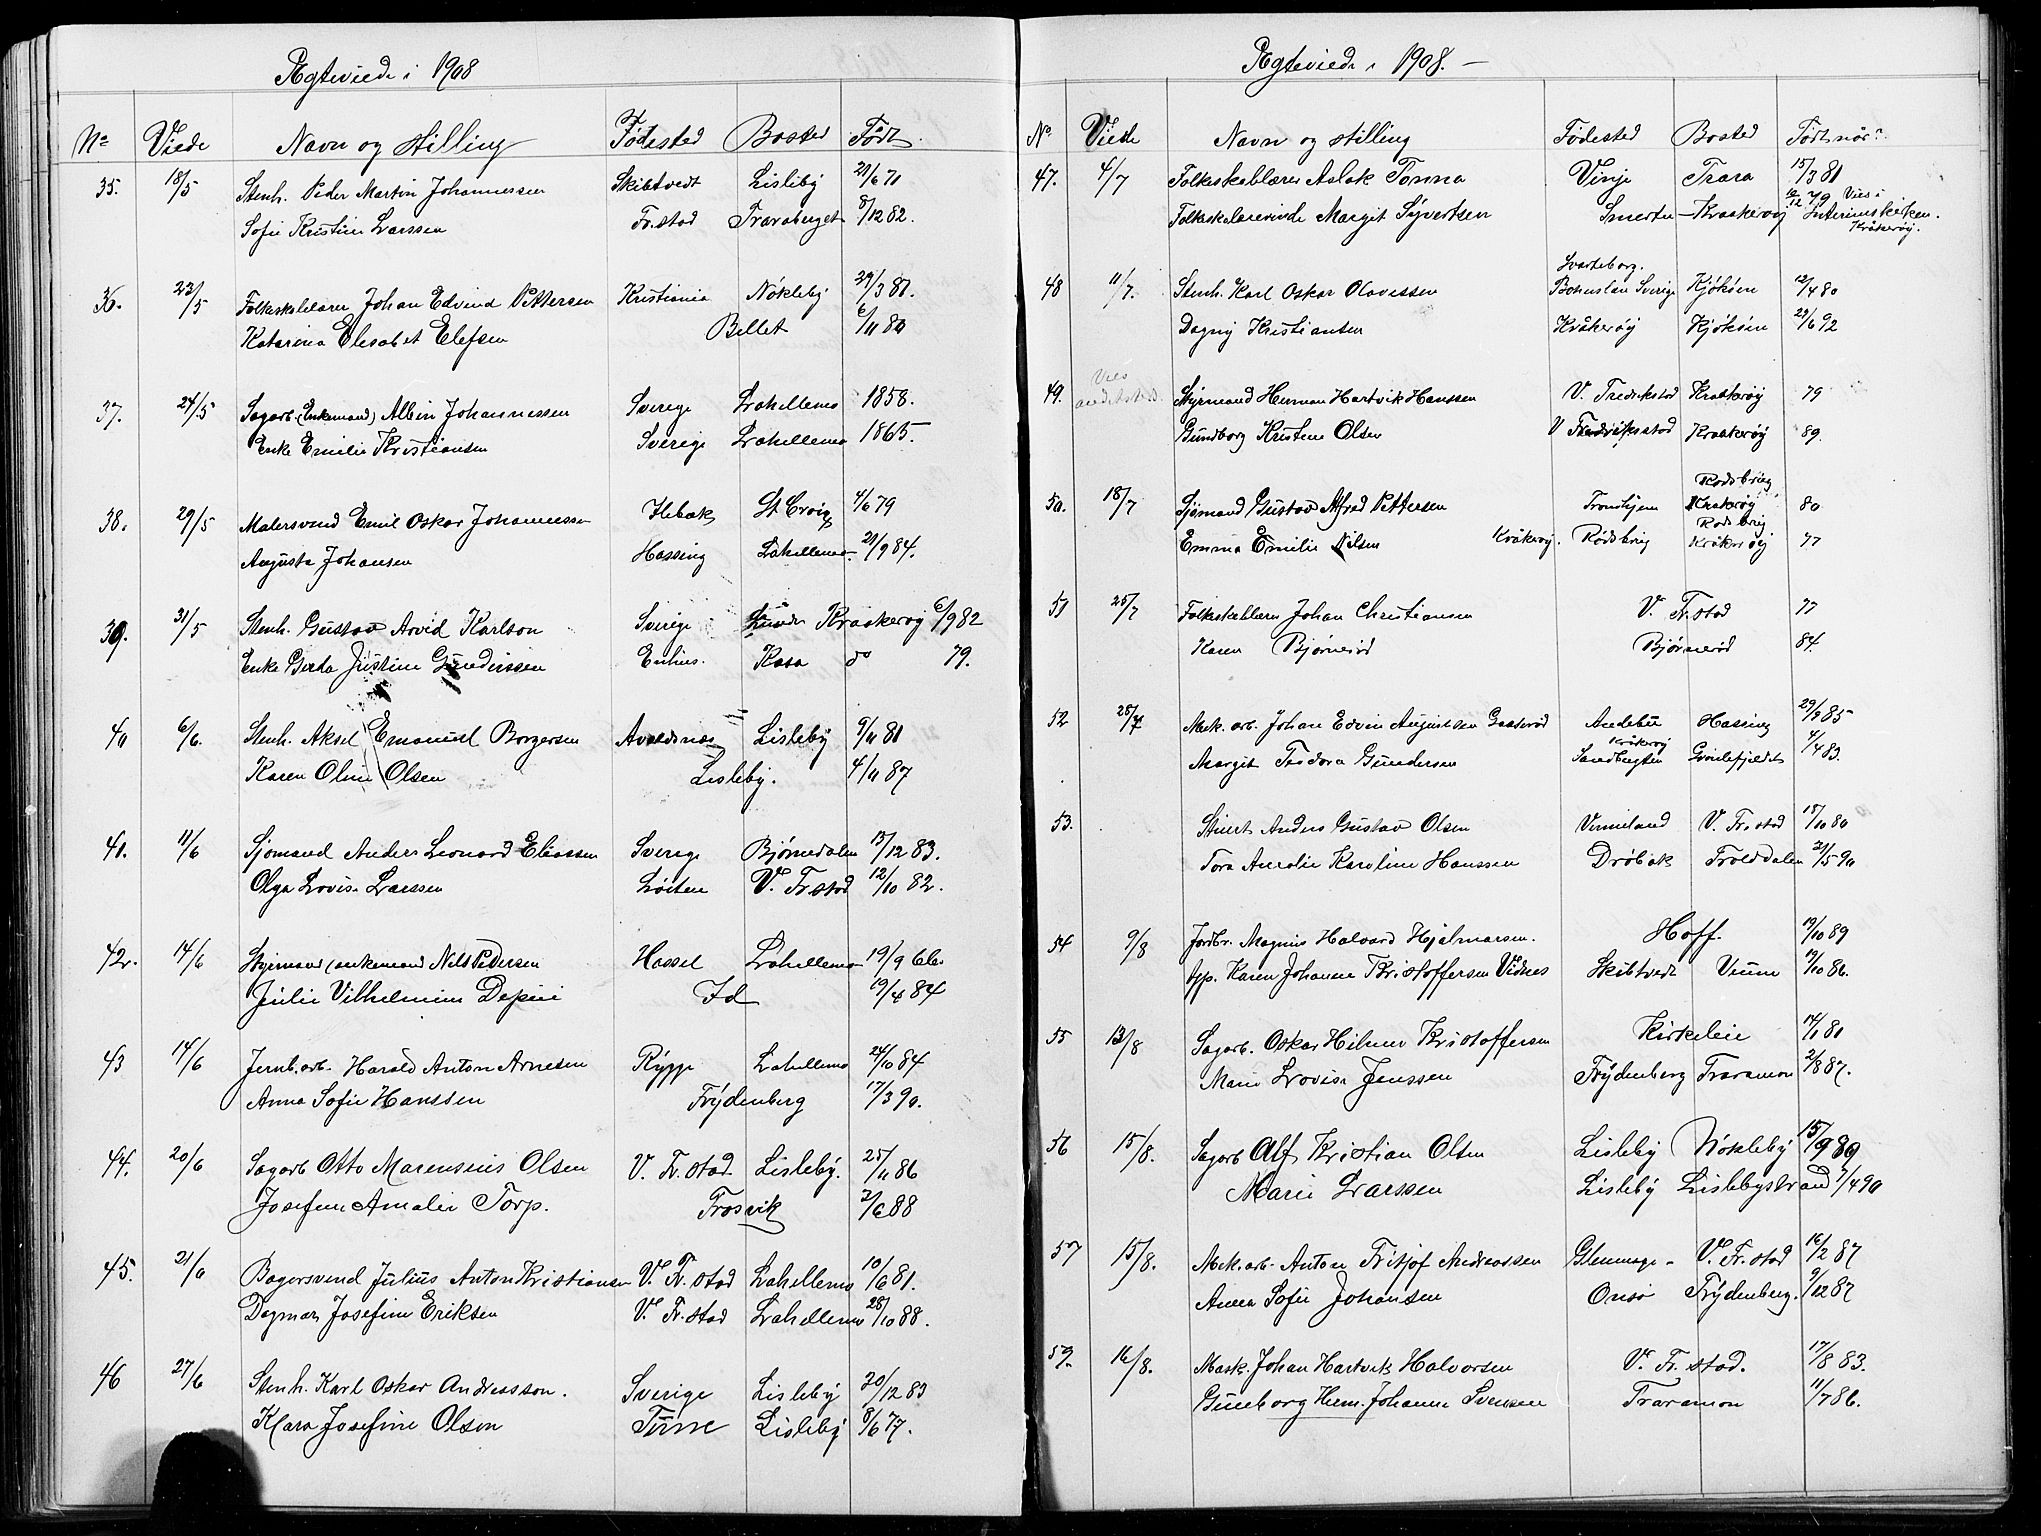 Ægteviede i 1908
No Viede Navn og stilling Fødested Bosted Født
35. 18/5 Stenh. Peder Martin Johannessen Skibtvedt Lisleby 21/6 71
Sofie Kristine Larssen Fr.stad Traraberget 8/12 82.
36. 23/5 Folkeskolelærer Johan Edvind Pettersen Kristiania Nøkleby 29/3 81.
Katarina Elisabet Elefsen Billet 6/11 80
37. 24/5 Sagarb. (Enkemand) Albin Johannessen Sverige Lahellemo 1858.
Enke Emilie Kristiansen Sverige Lahellemo 1865.
38. 29/5 Malersvend Emil Oskar Johannessen St Croix 4/6 79
Augusta Johansen Hassing Lahellemo. 21/9 84.
39. 31/5 Stenh. Gustav Arvid Karlson Sverige Lunde Kraakerøy 6/9 82
Enke Gerda Justine Gundersen Kasa do 79.
40 6/6. Stenh. Aksel Emanuel Borgersen Avaldsnes Lisleby 9/11 81
Karen Oline Olsen Lisleby. 4/11 87
41. 11/6 Sjømand Anders Leonard Eliassen Sverige Bjørnedalen 13/12 83.
Olga Lovise Larssen Løiten V. Fr.stad 12/10 82.
42. 14/6 Styrmand (enkemand Nils Pedersen Hassel Lahellemo 19/9 66.
Julie Vilhelmine Depui Id 19/4 84
43 14/6 Jernb.arb. Harald Anton Arnesen Rygge Lahellemo 24/10 84
Anna Sofie Hanssen Frydenberg 17/3 90.
44. 20/6 Sagarb Otto Marensius Olsen V. Fr.stad Lisleby. 25/11 86
Josefine Amalie Torp. Trosvik 2/6 88
45. 21/6 Bagersvend Julius Anton Kristiansen V. Fr.stad Lahellemo 10/6 81.
Dagmar Josefine Eriksen V. Fr.stad Lahellemo 28/10 88.
46 27/6 Stenh. Karl Oskar Andreasson. Sverige Lisleby 20/12 83
Klara Josefine Olsen Tune Lisleby 8/6 77.
Ægteviede i 1908. –
No. Viede Navn og stilling Fødested Bosted Født når?
47. 4/7 Folkeskolærer Aslak Tonna Vinje Trara 15/3 81
Folkeskolærerinde Margit Syvertsen Smertu – Kraakerøy 12/12 79 Vies i Interimskirken. Kråkerøy.
48 11/7. Stenh. Karl Oskar Olavessen Svarteborg. Bohuslän Sverige Kjøkøen 12/4 80
Dagny Kristiansen Kråkerøy Kjøkøen 29/6 92
49. Vies andetsteds. Styrmand Herman Hartvik Hanssen V. Fredrikstad Kraakerøy 79
Gundborg Kristine Olsen V Fredrikstad Kraakerøy 89.
50. 18/7 Sjømand Gustav Alfred Pettersen Trondhjem Rødsbrieg Kraakerøy 80
Emma Emilie Nilsen Kråkerøy. Rødsbrig Rødsbrig Kråkerøy 77
51 25/7 Folkeskolelærer Johan Christiansen V. Fr.stad 77
Karen Bjørnerød Bjørnerød 84.
52 28/7 Mek. arb. Johan Edvin Augustsen Andebu Hassing 29/3 85
Margit Teodora Gundersen Kråkerøy Sandbugten Grønlifjeldet 4/4 83.
53. Stuert Anders Gustav Olsen Vermland V. Fr.stad 18/10 80
Tora Amalie Karoline Hanssen Drøbak Trolddalen 21/5 90
54 9/8 Jordbr. Magnus Halvard Hjalmarsen. Hoff. 19/10 89
Karen Johanne Kristoffersen Vidnes Skibtvedt Veum 19/10 86.
55 13/8 Sagarb. Oskar Hilmer Kristoffersen Kirkeleie 14/1 81
Marie Lovise Jenssen Frydenberg Traramon 2/8 87.
56 15/8. Sagarb Alf Kristian Olsen Lisleby Nøkleby 15/9 89
Marie Larssen Lisleby Lislebystrand 7/4 90
57 15/8. Mek.arb. Anton Fritjof Andreassen Glemminge – V. Fr.stad 16/2 87
Anna Sofie Johansen Onsø Frydenberg. 9/12 87
59. 16/8. Mask. Johan Hartvik Halvorsen V. Fr.stad. 17/8 83.
Gunborg Herm. Johanne Svensen Traramon 11/7 86.